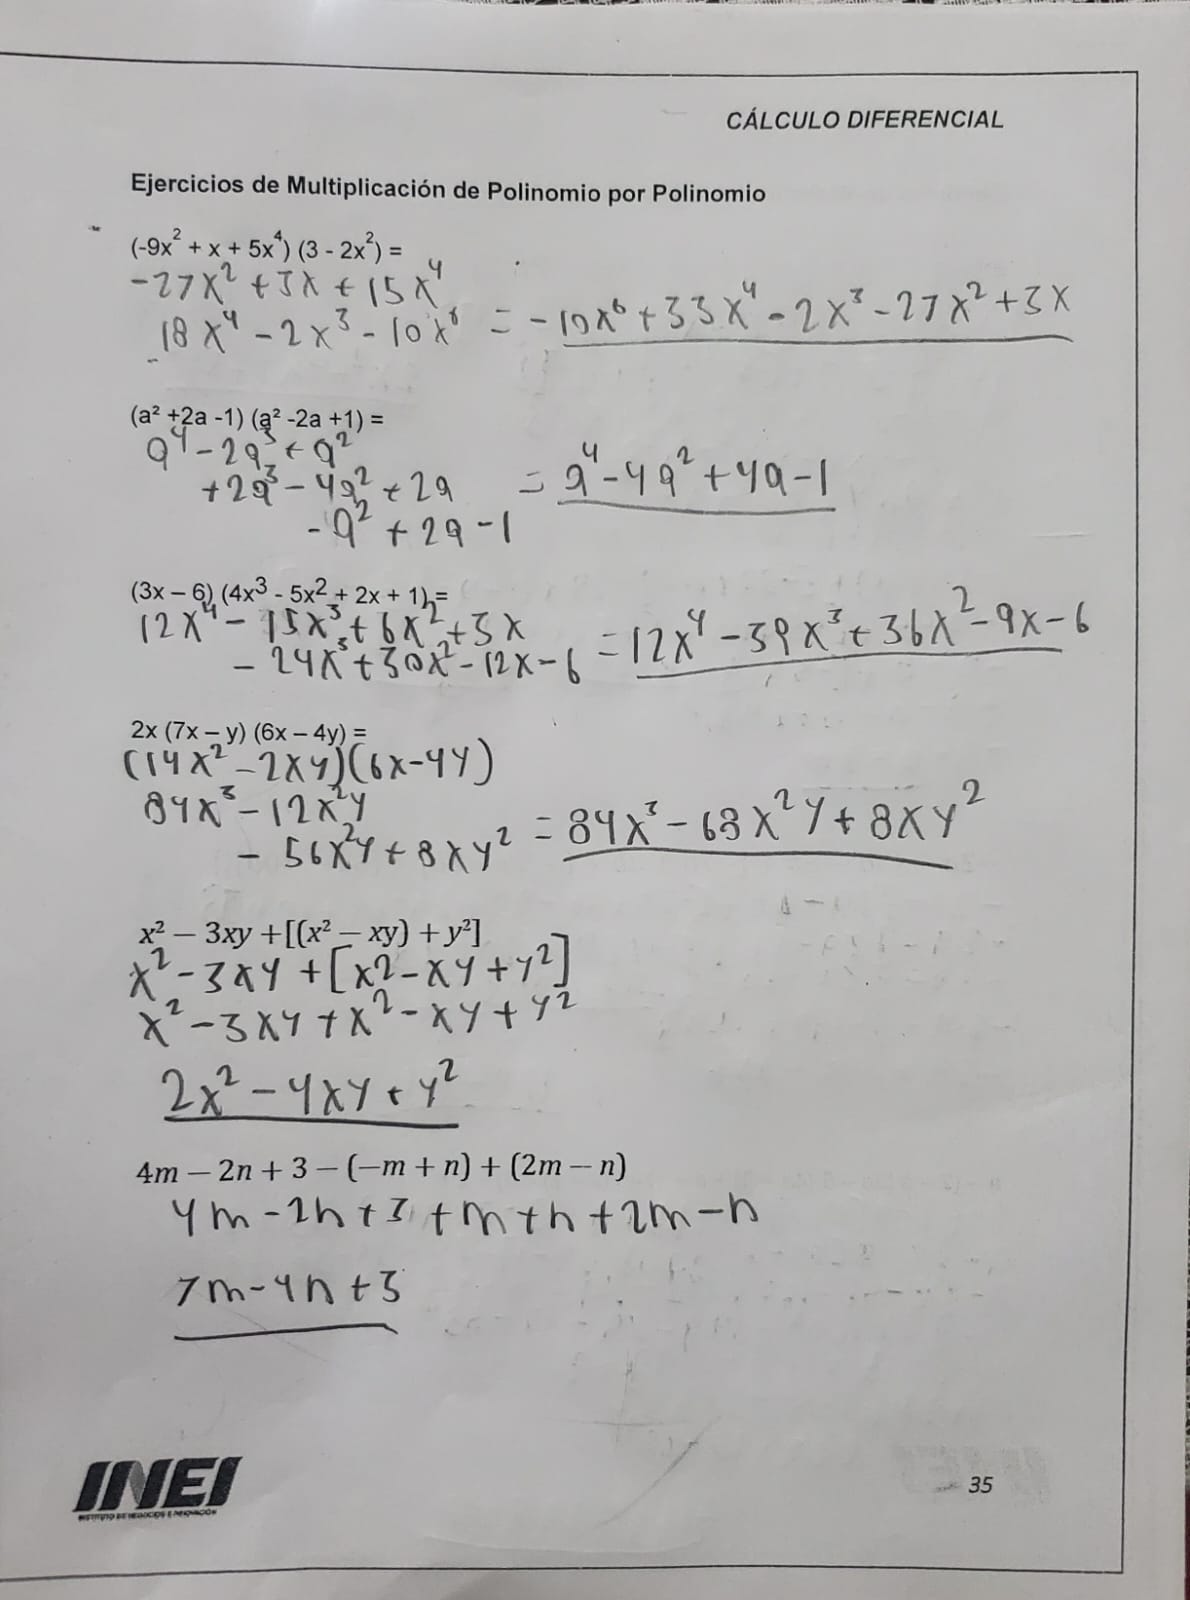 CÁLCULO DIFERENCIAL
Ejercicios de Multiplicación de Polinomio por Polinomio
(-9x² + x + 5x⁴) (3 - 2x²) =
-27x² + 3x + 15x⁴
18x⁴ - 2x³ - 10x⁶ = -10x⁶ + 33x⁴ - 2x³ - 27x² + 3x
(a² +2a -1) (a² -2a +1) =
a⁴ - 2a³ + a²
+2a³ - 4a² + 2a = a⁴ - 4a² + 4a - 1
- a² + 2a - 1
(3x – 6) (4x³ - 5x² + 2x + 1) =
12x⁴ - 15x³ + 6x² + 3x
- 24x³ + 30x² - 12x - 6 = 12x⁴ - 39x³ + 36x² - 9x - 6
2x (7x – y) (6x – 4y) =
(14x² - 2xy)(6x - 4y)
84x³ - 12x²y
- 56x²y + 8xy² = 84x³ - 68x²y + 8xy²
x² – 3xy +[(x² – xy) + y²]
x² - 3xy + [x2 - xy + y²]
x² - 3xy + x² - xy + y²
2x² - 4xy + y²
4m – 2n + 3 – (–m + n) + (2m – n)
4m - 2n + 3 + m + n + 2m - n
7m - 4n + 3
INEI
INSTITUTO DE NEGOCIOS E INNOVACIÓN
35